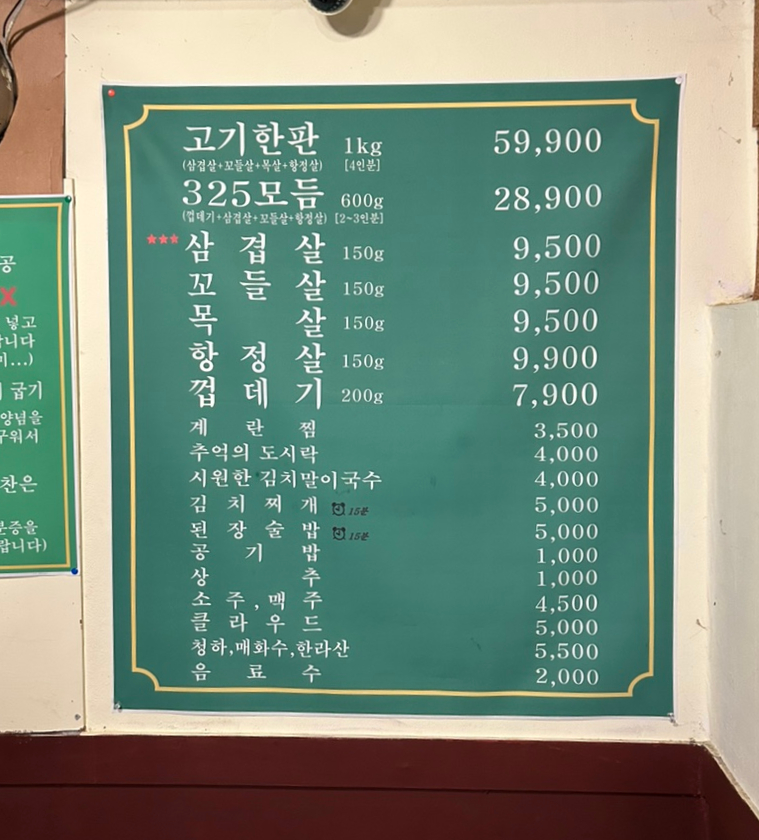 고기한판 1kg 59,900
(삼겹살+꼬들살+목살+항정살) [4인분]
325모듬 600g 28,900
(껍데기+삼겹살+꼬들살+항정살) [2~3인분]
★★★ 삼겹살 150g 9,500
꼬들살 150g 9,500
목살 150g 9,500
항정살 150g 9,900
껍데기 200g 7,900
계란찜 3,500
추억의 도시락 4,000
시원한 김치말이국수 4,000
김치찌개 15분 5,000
된장술밥 15분 5,000
공기밥 1,000
상추 1,000
소주,맥주 4,500
클라우드 5,000
청하,매화수,한라산 5,500
음료수 2,000
공
X
넣고
니다
...)
굽기
양념을
구워서
찬은
분증을
랍니다)